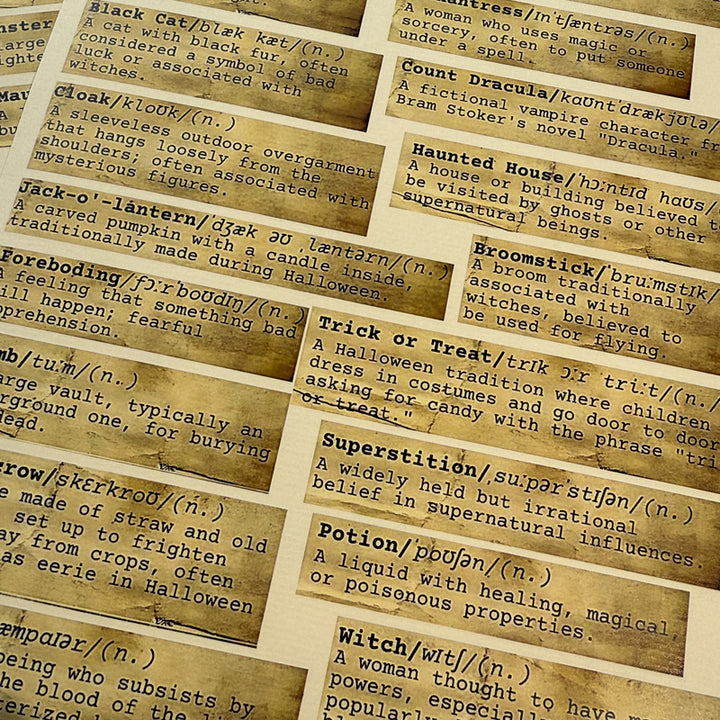 nster
large
frighte
Mau
A
bu
Black Cat/blæk kæt/(n.)
A cat with black fur, often
considered a symbol of bad
luck or associated with
witches.
Cloak/kloʊk/(n.)
A sleeveless outdoor overgarment
that hangs loosely from the
shoulders; often associated with
mysterious figures.
Jack-o'-lantern/ˈdʒæk əʊ ˌlæntərn/(n.)
A carved pumpkin with a candle inside,
traditionally made during Halloween.
Foreboding/fɔːrˈboʊdɪŋ/(n.)
A feeling that something bad
will happen; fearful
apprehension.
mb/tuːm/(n.)
large vault, typically an
erground one, for burying
dead.
row/skɛrkroʊ/(n.)
e made of straw and old
set up to frighten
ay from crops, often
as eerie in Halloween
æmpaɪər/(n.)
being who subsists by
the blood of the
antress/ɪnˈtʃæntrəs/(n.)
A woman who uses magic or
sorcery, often to put someone
under a spell.
Count Dracula/kaʊntˈdrækjʊlə/
A fictional vampire character fr
Bram Stoker's novel "Dracula."
Haunted House/ˈhɔːntɪd haʊs/
A house or building believed t
be visited by ghosts or other
supernatural beings.
Broomstick/ˈbruːmstɪk/
A broom traditionally
associated with
witches, believed to
be used for flying.
Trick or Treat/trɪk ɔːr triːt/(n./
A Halloween tradition where children
dress in costumes and go door to door
asking for candy with the phrase "tri
or treat."
Superstition/ˌsuːpərˈstɪʃən/(n.)
A widely held but irrational
belief in supernatural influences.
Potion/ˈpoʊʃən/(n.)
A liquid with healing, magical,
or poisonous properties.
Witch/wɪtʃ/(n.)
A woman thought to have m
powers, especial
popularly